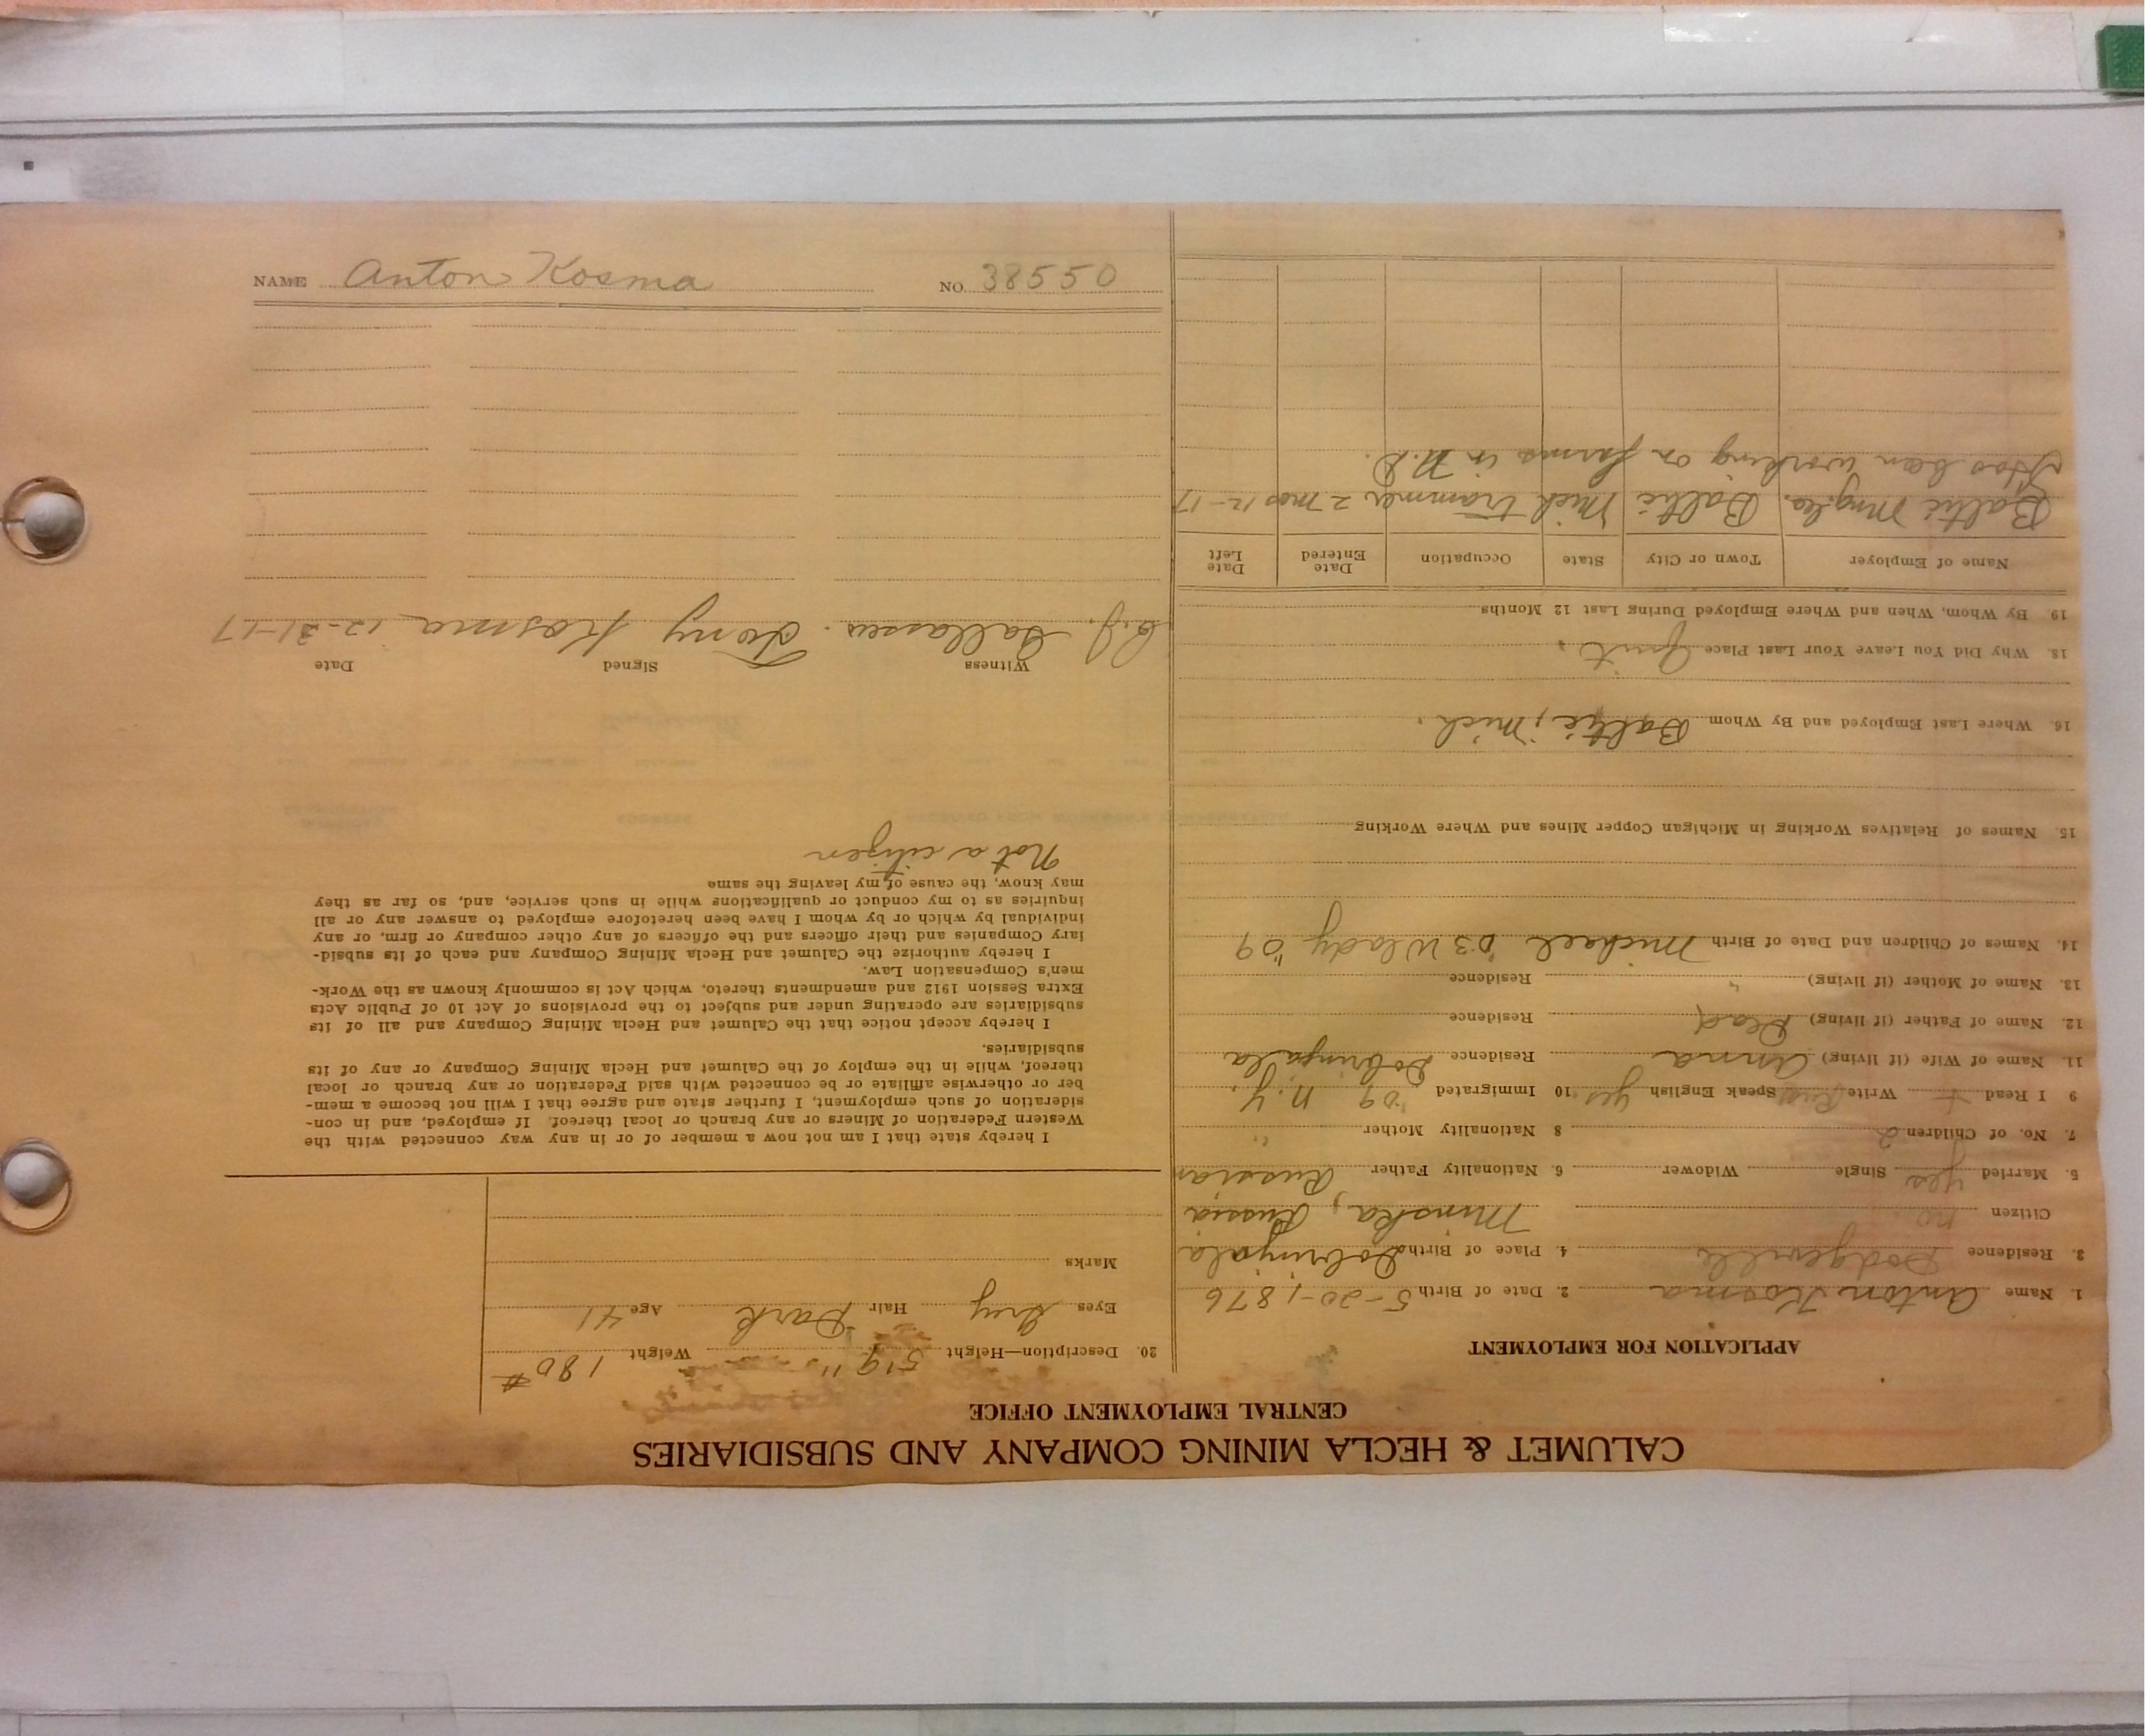 CALUMET & HECLA MINING COMPANY AND SUBSIDIARIES
CENTRAL EMPLOYMENT OFFICE
APPLICATION FOR EMPLOYMENT
1. Name Anton Kosma 2. Date of Birth 5-20-1876
3. Residence Dodgeville 4. Place of Birth Dobrinjala
Citizen no. Minska, Russia
5. Married yes Single Widower 6. Nationality Father Russian
7. No. of Children 2 8 Nationality Mother "
9 I Read + Write Russ Speak English yes 10 Immigrated '09 N.Y.
11. Name of Wife (if living) Anna Residence Dobrinjala
12. Name of Father (if living) Dead Residence
13. Name of Mother (if living) " Residence
14. Names of Children and Date of Birth Michael '03 Wlady '09
15. Names of Relatives Working in Michigan Copper Mines and Where Working
16. Where Last Employed and By Whom Baltic, Mich.
18. Why Did You Leave Your Last Place Quit.
19. By Whom, When and Where Employed During Last 12 Months
Name of Employer Town or City State Occupation Date Entered Date Left
Baltic Mng. Co. Baltic Mich trammer 2 mos 12-17
Has been working on farms in N.D.
20. Description—Height 5'9" Weight 180#
Eyes Grey Hair Dark Age 41
Marks
I hereby state that I am not now a member of or in any way connected with the
Western Federation of Miners or any branch or local thereof. If employed, and in con-
sideration of such employment, I further state and agree that I will not become a mem-
ber or otherwise affiliate or be connected with said Federation or any branch or local
thereof, while in the employ of the Calumet and Hecla Mining Company or any of its
subsidiaries.
I hereby accept notice that the Calumet and Hecla Mining Company and all of its
subsidiaries are operating under and subject to the provisions of Act 10 of Public Acts
Extra Session 1912 and amendments thereto, which Act is commonly known as the Work-
men's Compensation Law.
I hereby authorize the Calumet and Hecla Mining Company and each of its subsid-
iary Companies and their officers and the officers of any other company or firm, or any
individual by which or by whom I have been heretofore employed to answer any or all
inquiries as to my conduct or qualifications while in such service, and, so far as they
may know, the cause of my leaving the same
Not a citizen
Witness Signed Date
Tony Kosma 12-31-17
NAME Anton Kosma NO. 38550